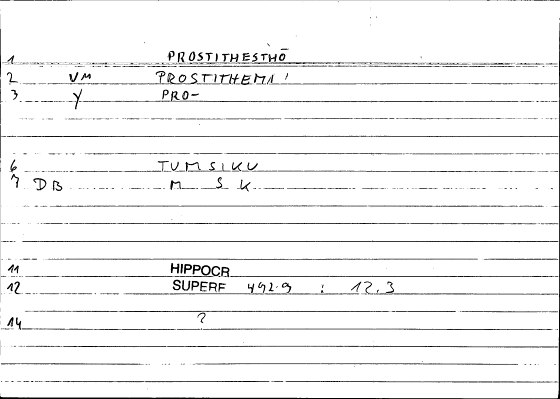 1 PROSTITHESTHŌ
2 VM PROSTITHEMI '
3 Y PRO-
6 TUMSIKU
7 DB M S K
11 HIPPOCR
12 SUPERF 492.9 : 12.3
14 ?